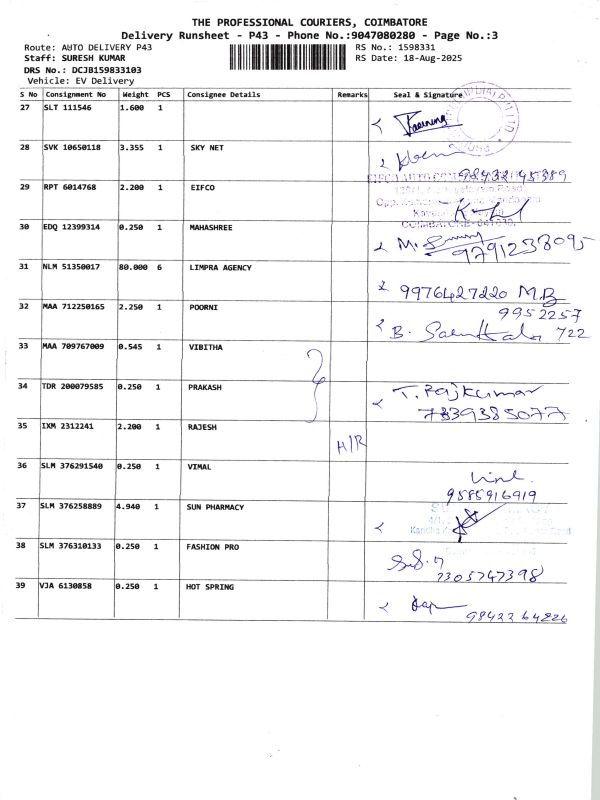 THE PROFESSIONAL COURIERS, COIMBATORE
Delivery Runsheet - P43 - Phone No.:9047080280 - Page No.:3
Route: AUTO DELIVERY P43
RS No.: 1598331
Staff: SURESH KUMAR
RS Date: 18-Aug-2025
DRS No.: DCJB159833103
Vehicle: EV Delivery
S No Consignment No Weight PCS Consignee Details Remarks Seal & Signature
27 SLT 111546 1.600 1
28 SVK 10650118 3.355 1 SKY NET
98432 45389
29 RPT 6014768 2.200 1 EIFCO
COIMBATORE
30 EDQ 12399314 0.250 1 MAHASHREE
M.
9791233095
31 NLM 51350017 80.000 6 LIMPRA AGENCY
9976427220 M.B
32 MAA 712250165 2.250 1 POORNI
9952257
B. 722
33 MAA 709767009 0.545 1 VIBITHA
34 TDR 200079585 0.250 1 PRAKASH
T. Rajkumar
7339385077
35 IXM 2312241 2.200 1 RAJESH
H/R
36 SLM 376291540 0.250 1 VIMAL
9585916919
37 SLM 376258889 4.940 1 SUN PHARMACY
38 SLM 376310133 0.250 1 FASHION PRO
7305747398
39 VJA 6130858 0.250 1 HOT SPRING
98422 64226